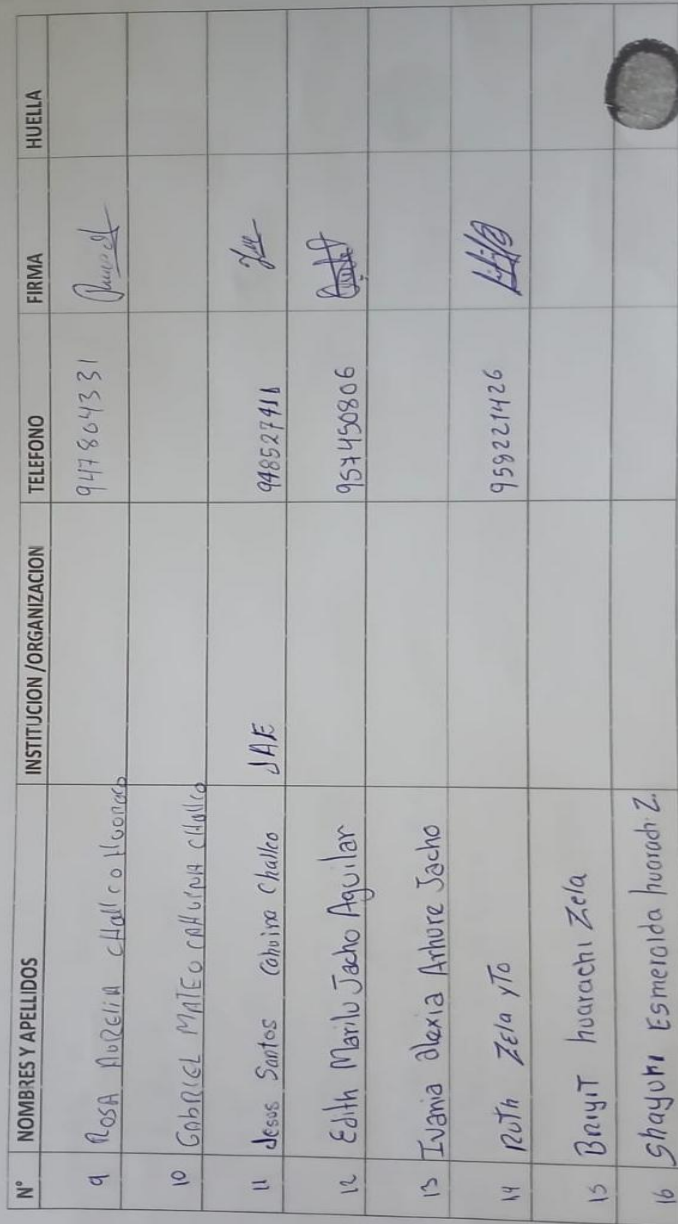 N° NOMBRES Y APELLIDOS INSTITUCION /ORGANIZACION TELEFONO FIRMA HUELLA
9 ROSA AURELIA CHAllCO 947804331
10 GABRIEL MATEO CAHUINA CHAllCO
11 Jesus Santos Cahuina Challco JAE 948527411
12 Edith Marilu Jacho Aguilar 957450806
13 Ivania Alexia Arhure Jacho
14 Ruth Zela yTo 959221426
15 BriyiT huarachi Zela
16 Shayuri Esmeralda huarachi Z.